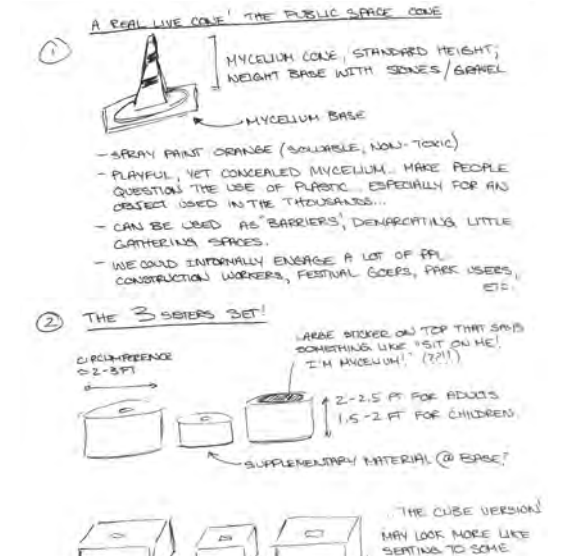 A REAL LIVE CONE! THE PUBLIC SPACE CONE
1
MYCELIUM CONE, STANDARD HEIGHT;
WEIGHT BASE WITH STONES/GRAVEL
MYCELIUM BASE
- SPRAY PAINT ORANGE (SOLUABLE, NON-TOXIC)
- PLAYFUL, YET CONCEALED MYCELIUM... MAKE PEOPLE
QUESTION THE USE OF PLASTIC... ESPECIALLY FOR AN
OBJECT USED IN THE THOUSANDS...
- CAN BE USED AS "BARRIERS", DEMARCATING LITTLE
GATHERING SPACES.
- WE COULD INFORMALLY ENGAGE A LOT OF PPL
CONSTRUCTION WORKERS, FESTIVAL GOERS, PARK USERS,
ETC.
2 THE 3 SISTERS SET!
LARGE STICKER ON TOP THAT SAYS
SOMETHING LIKE "SIT ON ME!
I'M MYCELIUM!" (??!!)
CIRCUMFERENCE
2-3 FT
2-2.5 FT FOR ADULTS
1.5-2 FT FOR CHILDREN.
SUPPLEMENTARY MATERIAL @ BASE?
THE CUBE VERSION!
MAY LOOK MORE LIKE
SEATING TO SOME